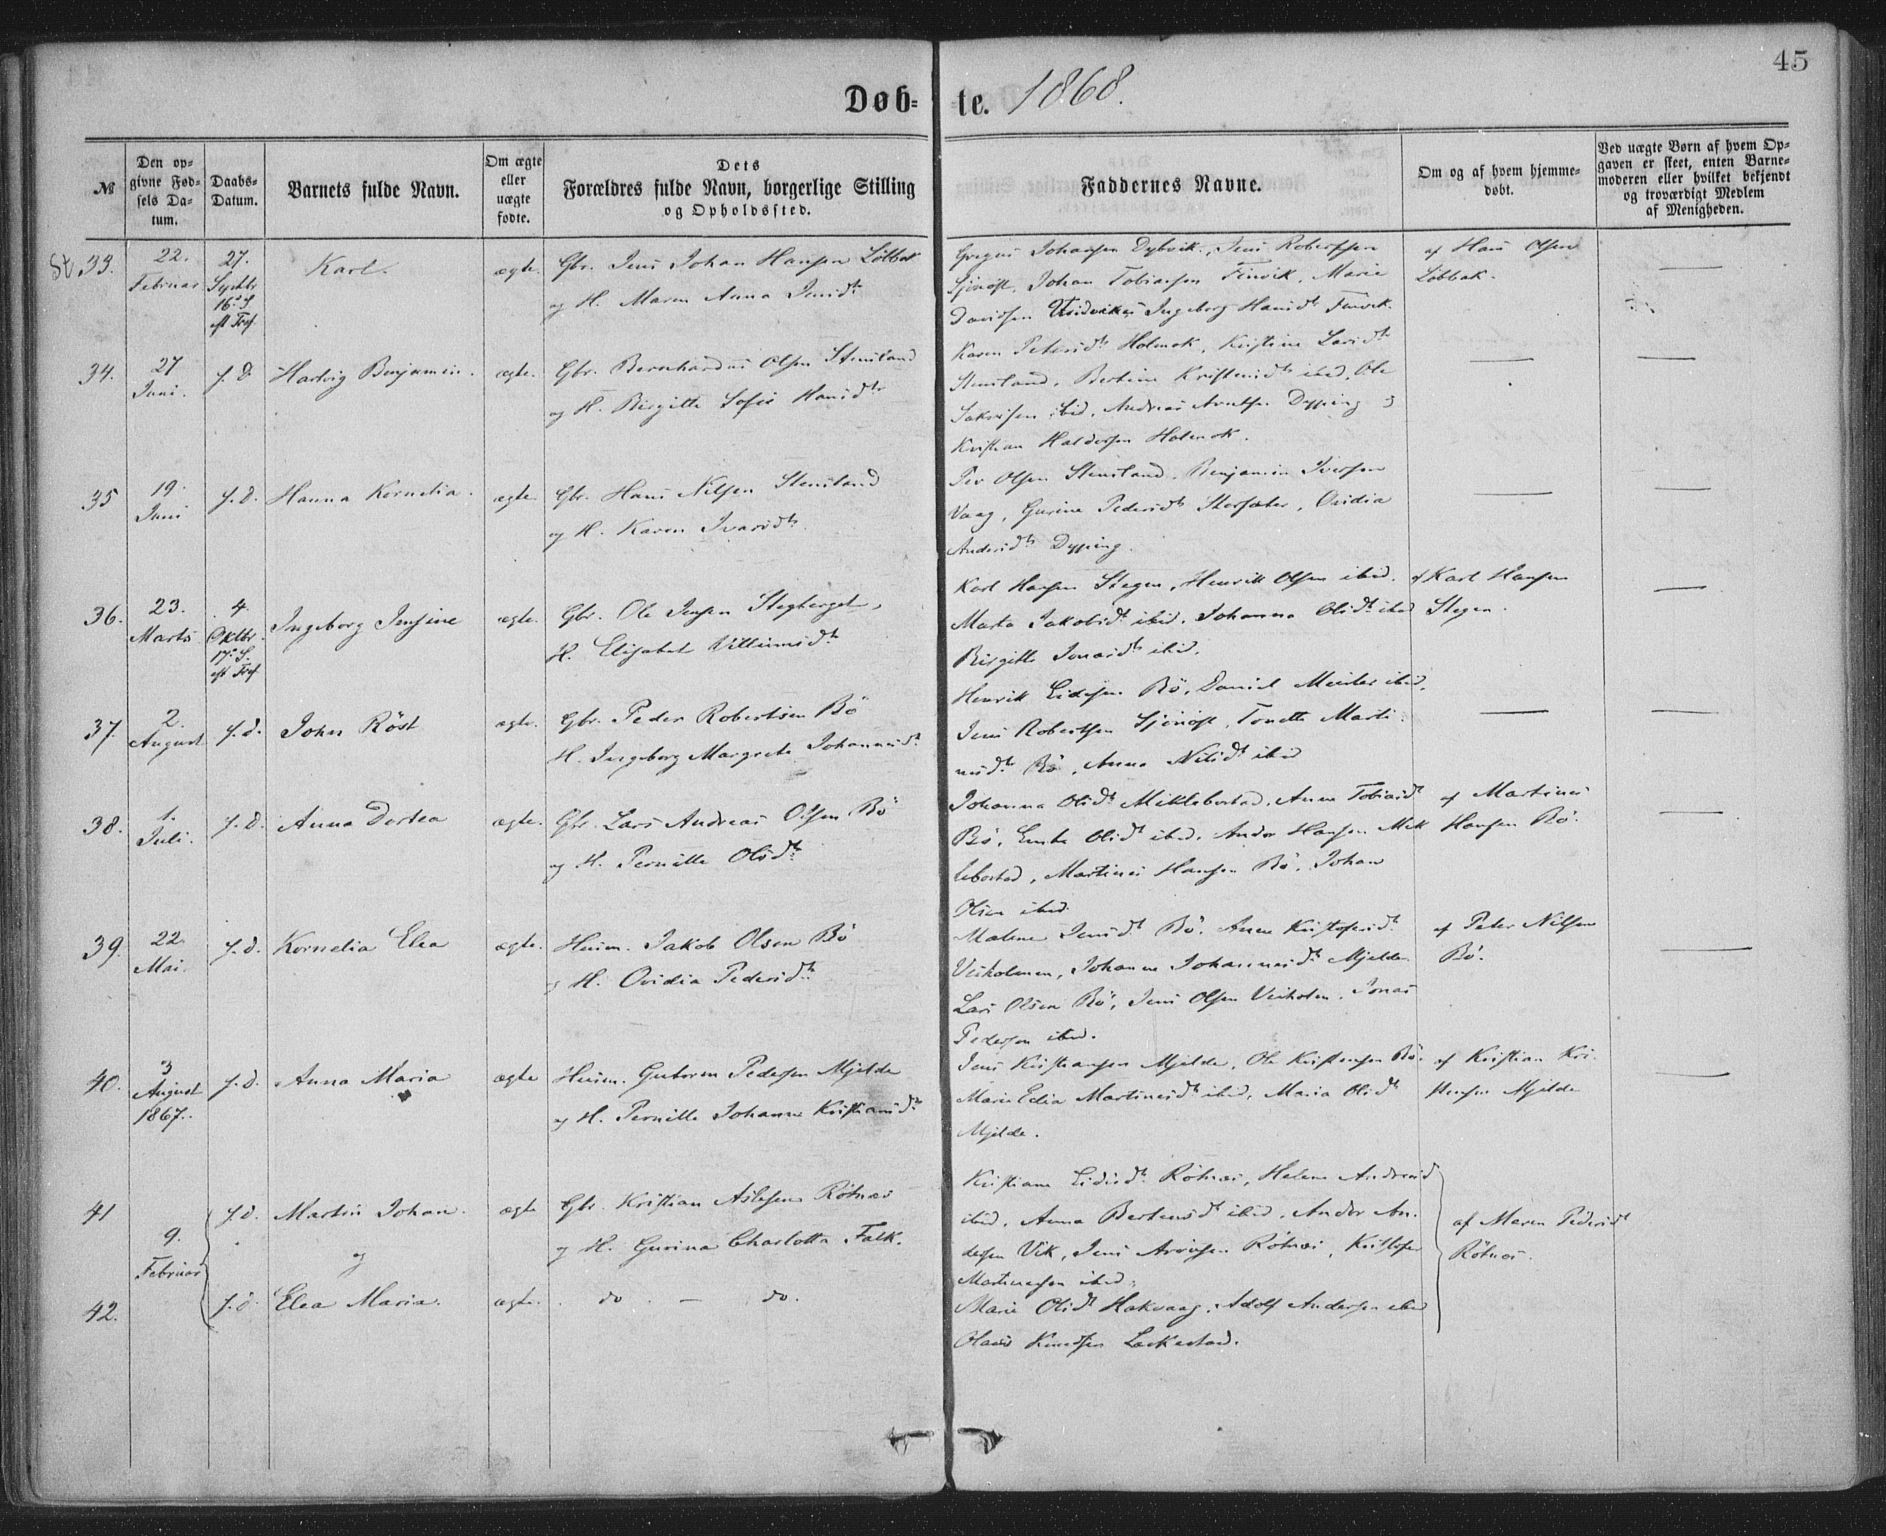 45
Døb- te. 1868.
№
Den opgivne Fødsels Datum.
Daabs-Datum.
Barnets fulde Navn.
Om ægte eller uægte fødte.
Dets Forældres fulde Navn, borgerlige Stilling og Opholdssted.
Faddernes Navne.
Om og af hvem hjemmedøbt.
Ved uægte Børn af hvem Opgaven er skeet, enten Barnemoderen eller hvilket bekjendt troværdigt Medlem af Menigheden.
St 33.
22. Februar
27. Septbr 16. S. eft Tref.
Karl.
ægte.
Gbr. Jens Johan Hansen Löbbak
og H. Maren Anna Jensdtr
Johansen Dybvik, Jens Robertsen
Johan Tobiassen Finvik, Marie
Davidsen Ingeborg Hansdtr Finvik.
af Hans Olsen
Löbbak.
34.
27 Juni.
s. D.
Hartvig Benjamin.
ægte.
Gbr. Bernhardus Olsen Stensland
og H. Birgitte Sofie Hansdtr
Karen Petersdtr Holmok, Kristine Larsdtr
Stensland, Bertine Kristensdtr ibid, Ole
ibid, Andreas Arntsen Dypping og
Kristian Haldorsen Holmok.
35
19. Juni
s. d.
Hanna Kornelia.
ægte
Gbr. Hans Nilsen Stensland
og H. Karen Ivarsdtr
Per Olsen Stensland, Benjamin Iversen
Vaag, Gurine Pedersdtr Storsæter, Ovidia
Andersdtr Dypping.
36.
23. Marts
4. Oktbr. 17. S. eft Tref
Ingeborg Jensine
ægte.
Gbr. Ole Jensen Stegberget,
H. Elisabet Villumsdtr
Karl Hansen Stegen, Henrik Olsen ibid.
Marta Jakobsdtr ibid. Johanna Olsdtr ibid
Birgitte Jonasdtr ibid.
af Karl Hansen
Stegen.
37.
2. August
s. d.
John Röst
ægte.
Gbr. Peder Robertsen Bö
H. Ingeborg Margrete Johannesdtr
Henrik Bö, Daniel ibid.
Jens Robertsen Tonette Marti-
nusdtr Bö, Anna Nilsdtr ibid
38.
1. Juli.
s. D.
Anna Dortea
ægte.
Gbr. Lars Andreas Olsen Bö
og H. Pernille Olsdtr
Johanna Olsdtr Miklebostad, Anne Tobiasdtr
Bö, Olsdtr ibid. Andor Hansen Mik
lebostad, Martinus Hansen Bö, Johan
Olsen ibid.
af Martinus
Hansen Bö.
39.
22. Mai.
s. d.
Kornelia Elea
ægte.
Husm. Jakob Olsen Bö
og H. Ovidia Pedersdtr
Malene Jensdtr Bö. Anne Kristofersdtr
Veiholmen, Johanne Johannesdtr Mjelde
Lars Olsen Bö, Jens Olsen Veiholm. Jonas
Pedersen ibid.
af Peter Nilsen
Bö.
40.
3 August 1867.
s. d.
Anna Maria
ægte
Husm. Guttorm Pedersen Mjelde
og H. Pernille Johanne Kristiansdtr
Jens Kristiansen Mjelde, Ole Kristensen Bö.
Marie Edia Martinusdtr ibid, Maria Olsdtr
Mjelde.
af Kristian Kri-
stensen Mjelde
41
9. Februar
s. d.
Martin Johan.
og
ægte
Gbr. Kristian Aslesen Rötnæs
og H. Gurina Charlotta Falk.
Kristiane Rötnæs, Helene Andreasd
ibid, Anna Berteusdtr ibid. Andor An-
dersen Vik, Jens Rötnæs, Kristofer
Martinussen ibid.
af Maren Pedersdtr
Rötnæs.
42.
s. d.
Elea Maria.
ægte.
do. — do.
Marie Olsdtr Hakvaag, Adolf Andersen ibid
Olaus Knudsen